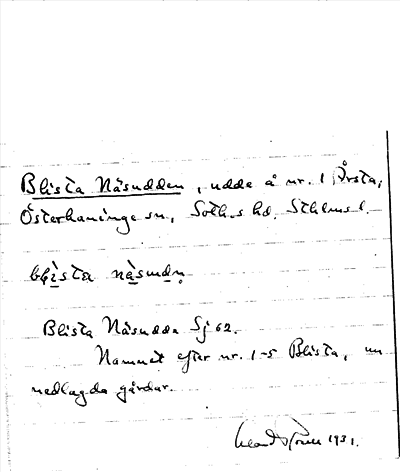 Blista Näsudden, udde å nr. 1 Årsta,
Österhaninge sn, Soth.s hd, Sthlms l.
blista näsudn
Blista Näsudde Sj 62.
Namnet efter nr. 1-5 Blista, nu
nedlagda gårdar.
1931.